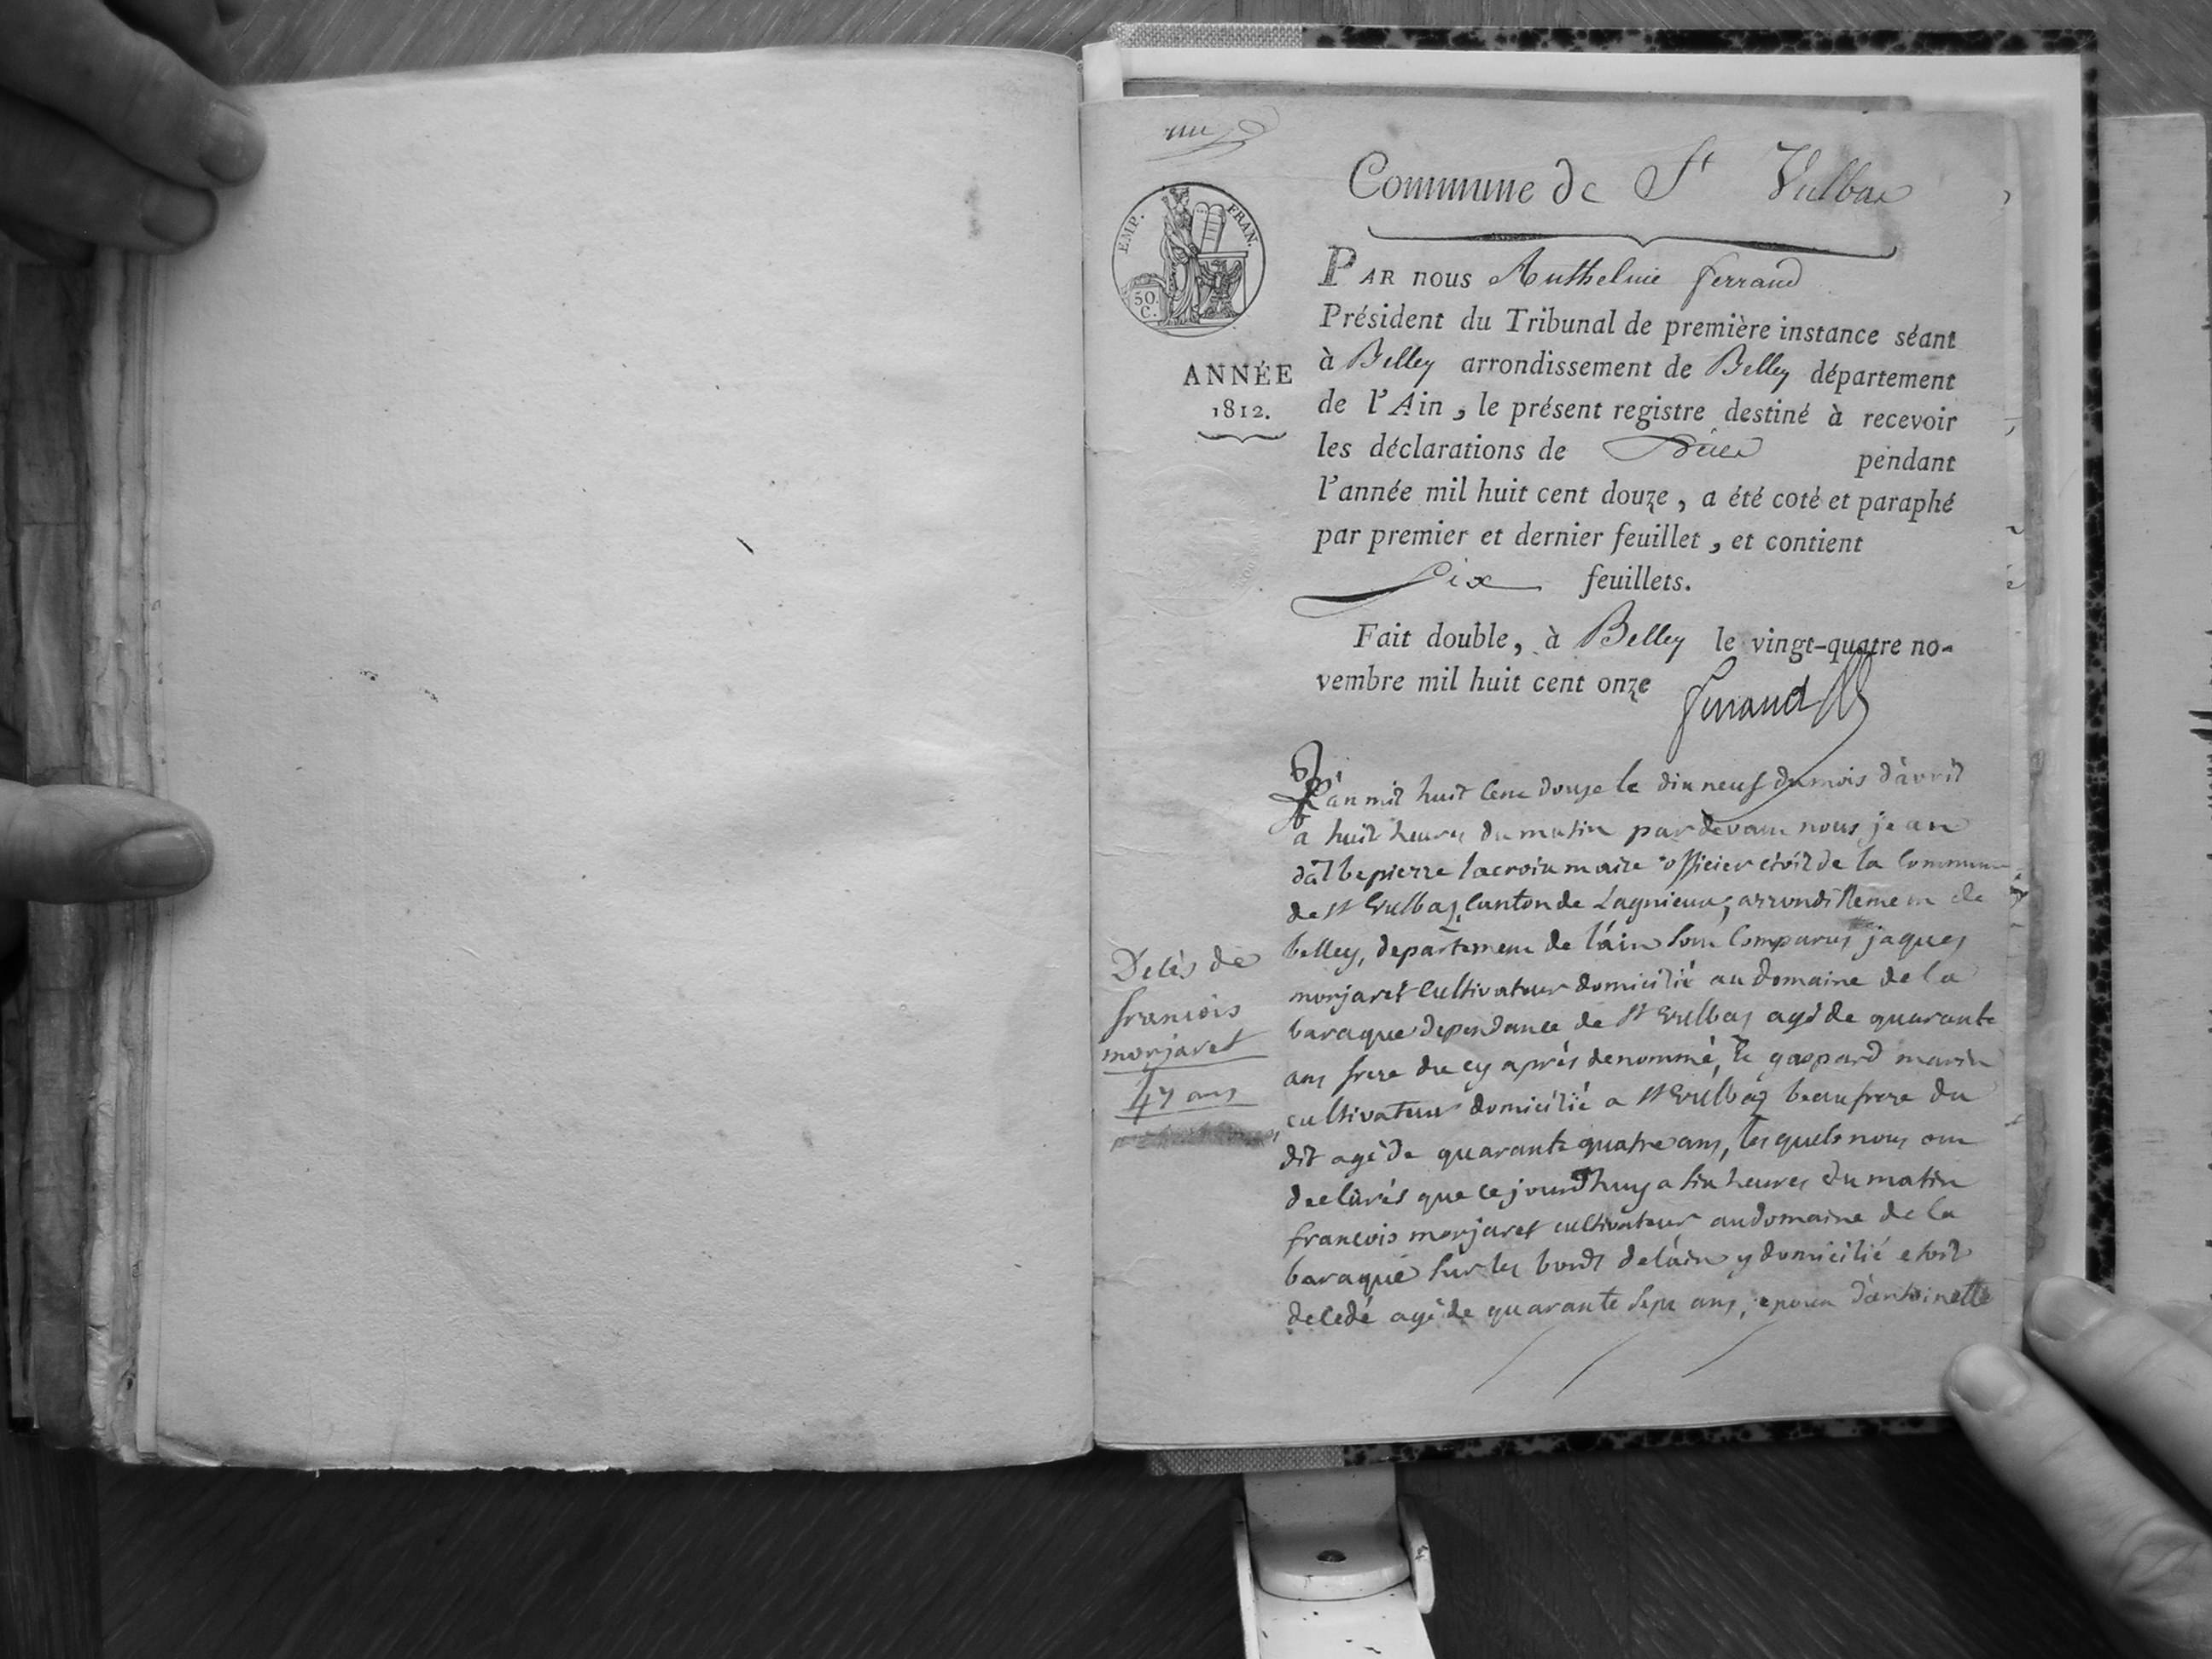 un
Commune de St Vulbas
EMP. FRAN.
50.
C.
ANNÉE
1812.
PAR nous Anthelme ferrand
Président du Tribunal de première instance séant
à Belley arrondissement de Belley département
de l'Ain, le présent registre destiné à recevoir
les déclarations de Décès pendant
l'année mil huit cent douze, a été coté et paraphé
par premier et dernier feuillet, et contient
Six feuillets.
Fait double, à Belley le vingt-quatre no-
vembre mil huit cent onze
ferrand
Decès de
francois
morjaret
47 ans
L'an mil huit Cent douze le dix neuf du mois d'avril
a huit heures du matin par devant nous jean
dalbepierre lacroix maire officier civil de la Commune
de st Vulbas, Canton de Lagnieux, arrondissement de
belley, departement de l'ain sont Comparus jaques
morjaret Cultivateur domicilié au domaine de la
baraque dependance de st Vulbas agé de quarante
ans frere du cy après denommé, Et gaspard marin
cultivateur domicilié a st Vulbas beaufrere du
dit agé de quarante quatre ans, les quels nous ont
declarés que cejourd'huy a six heures du matin
francois morjaret cultivateur audomaine de la
baraque sur les bords delain y domicilié etoit
decedé agé de quarante sept ans, epoux d'antoinette